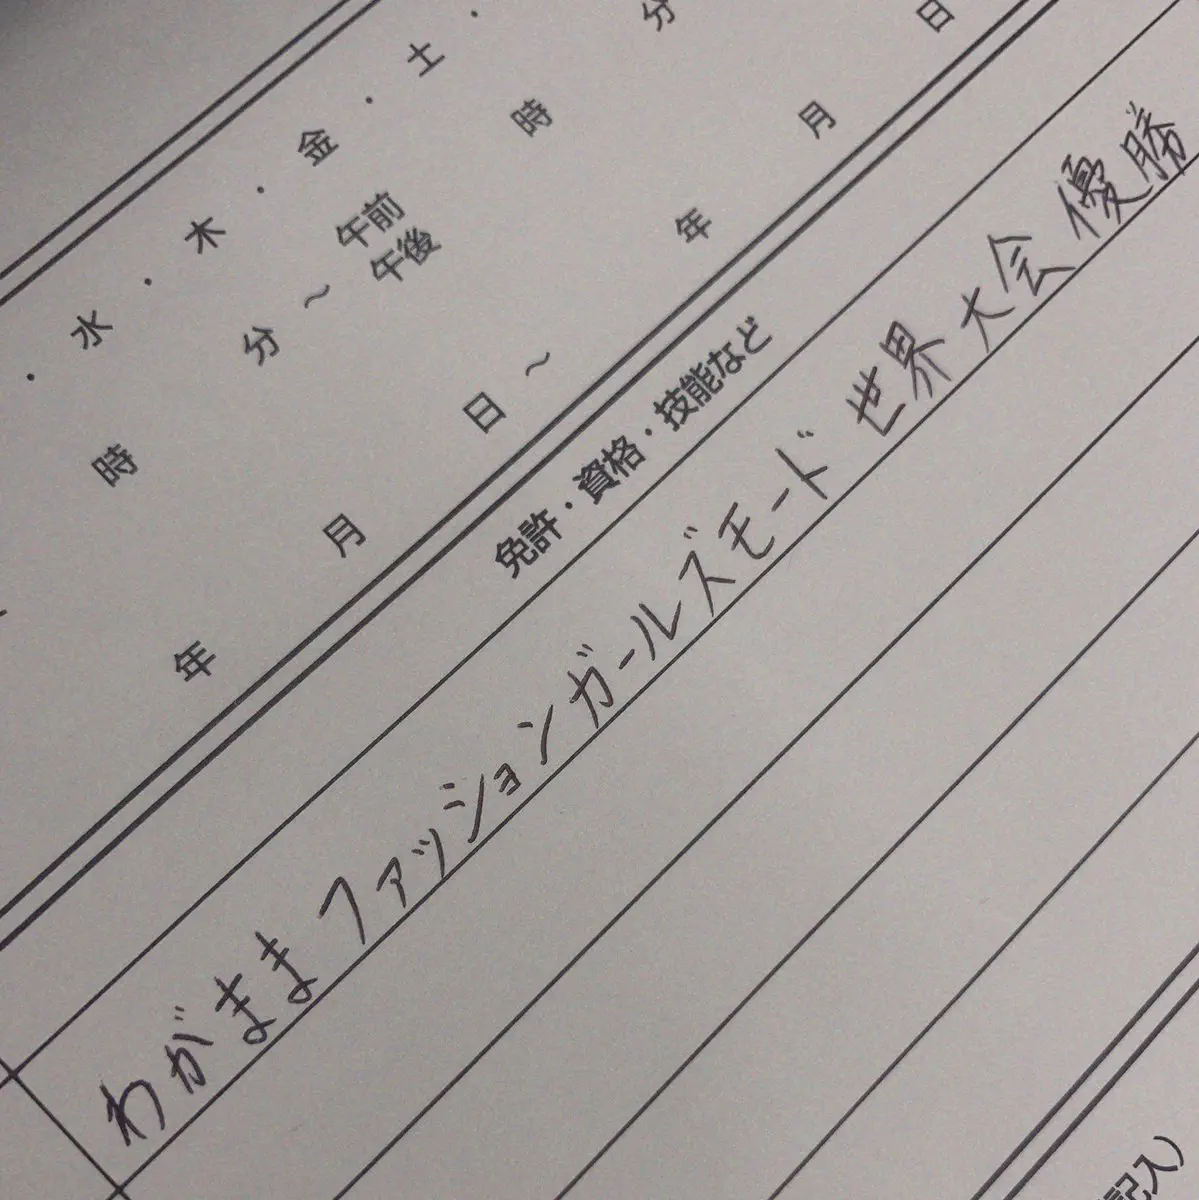 ・ 水 ・ 木 ・ 金 ・ 土 ・
午前
時 分 ～ 午後 時 分
年 月 日 ～ 年 月 日
免許・資格・技能など
わがままファッションガールズモード 世界大会優勝
記入）